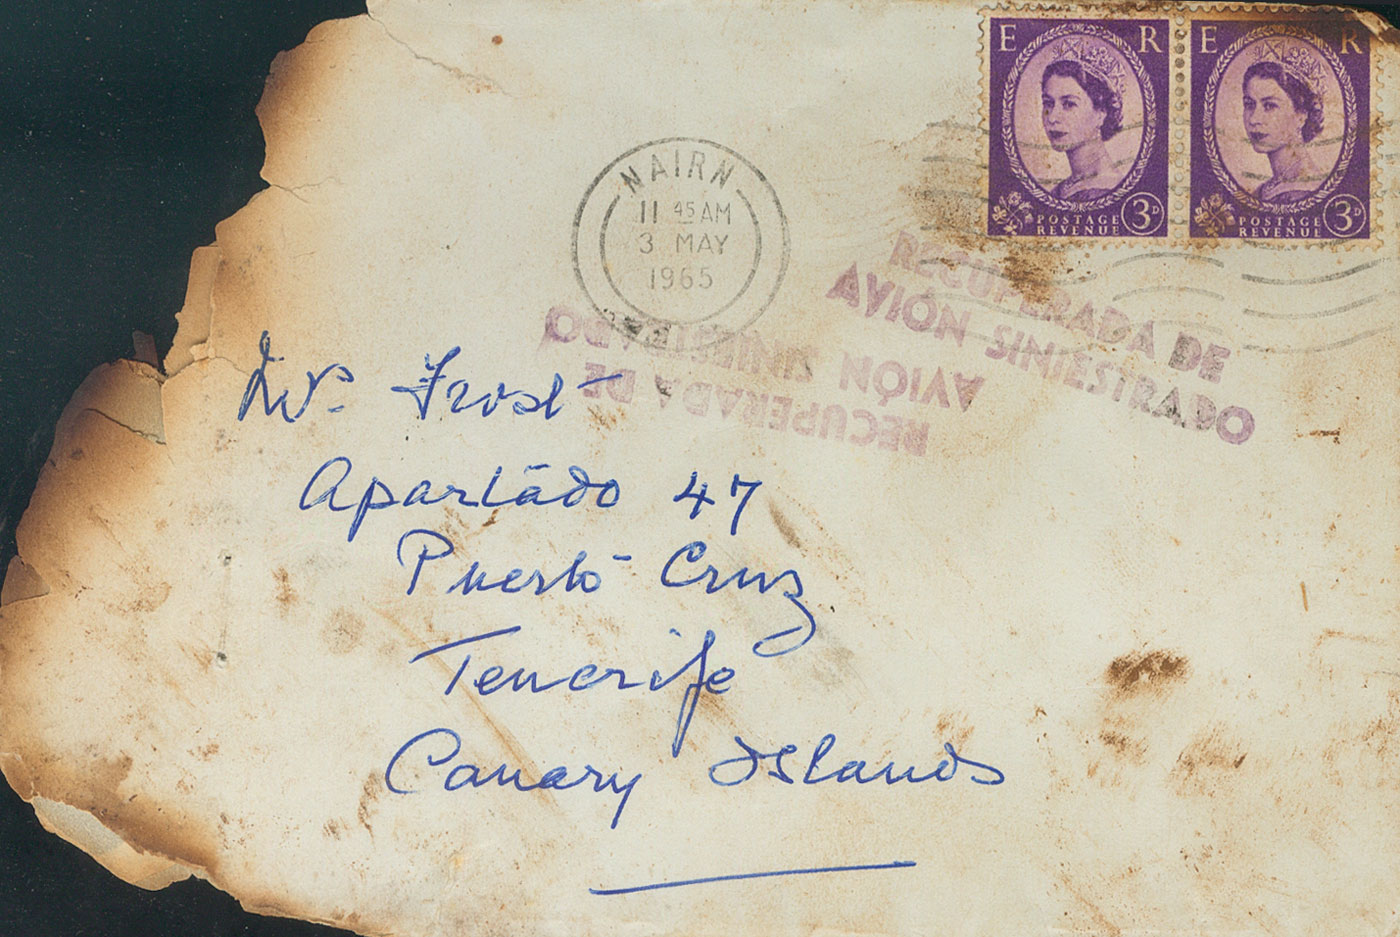 E R E R
POSTAGE REVENUE 3D POSTAGE REVENUE 3D
NAIRN
11 45 AM
3 MAY
1965
RECUPERADA DE
AVIÓN SINIESTRADO
RECUPERADA DE
AVIÓN SINIESTRADO
Mr. Frost
Apartado 47
Puerto Cruz
Tenerife
Canary Islands